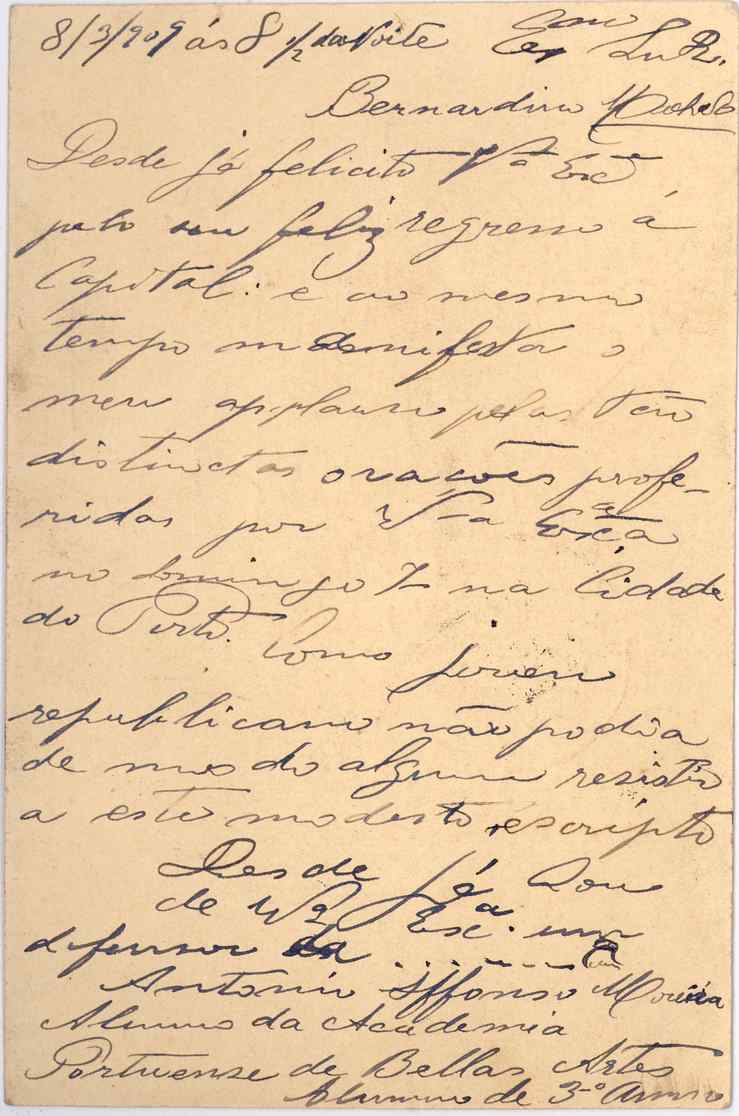 8/3/909 ás 8 1/2 da Noite Exmo Snr.
Bernardino Machado
Desde já felicito Va Excia
pelo seu feliz regresso á
Capital: e ao mesmo
tempo manifesta o
meu applauso pelas tão
distinctas oracões profe-
ridas por Va Excia
no domingo 7 na Cidade
do Porto. Como joven
republicano não podia
de modo algum resistir
a este modesto escripto
Desde já Sou
de Va Exca. um
defensor da ........
Antonio Affonso Moreira
Alumno da Academia
Portuense de Bellas Artes
Alumno de 3º Anno